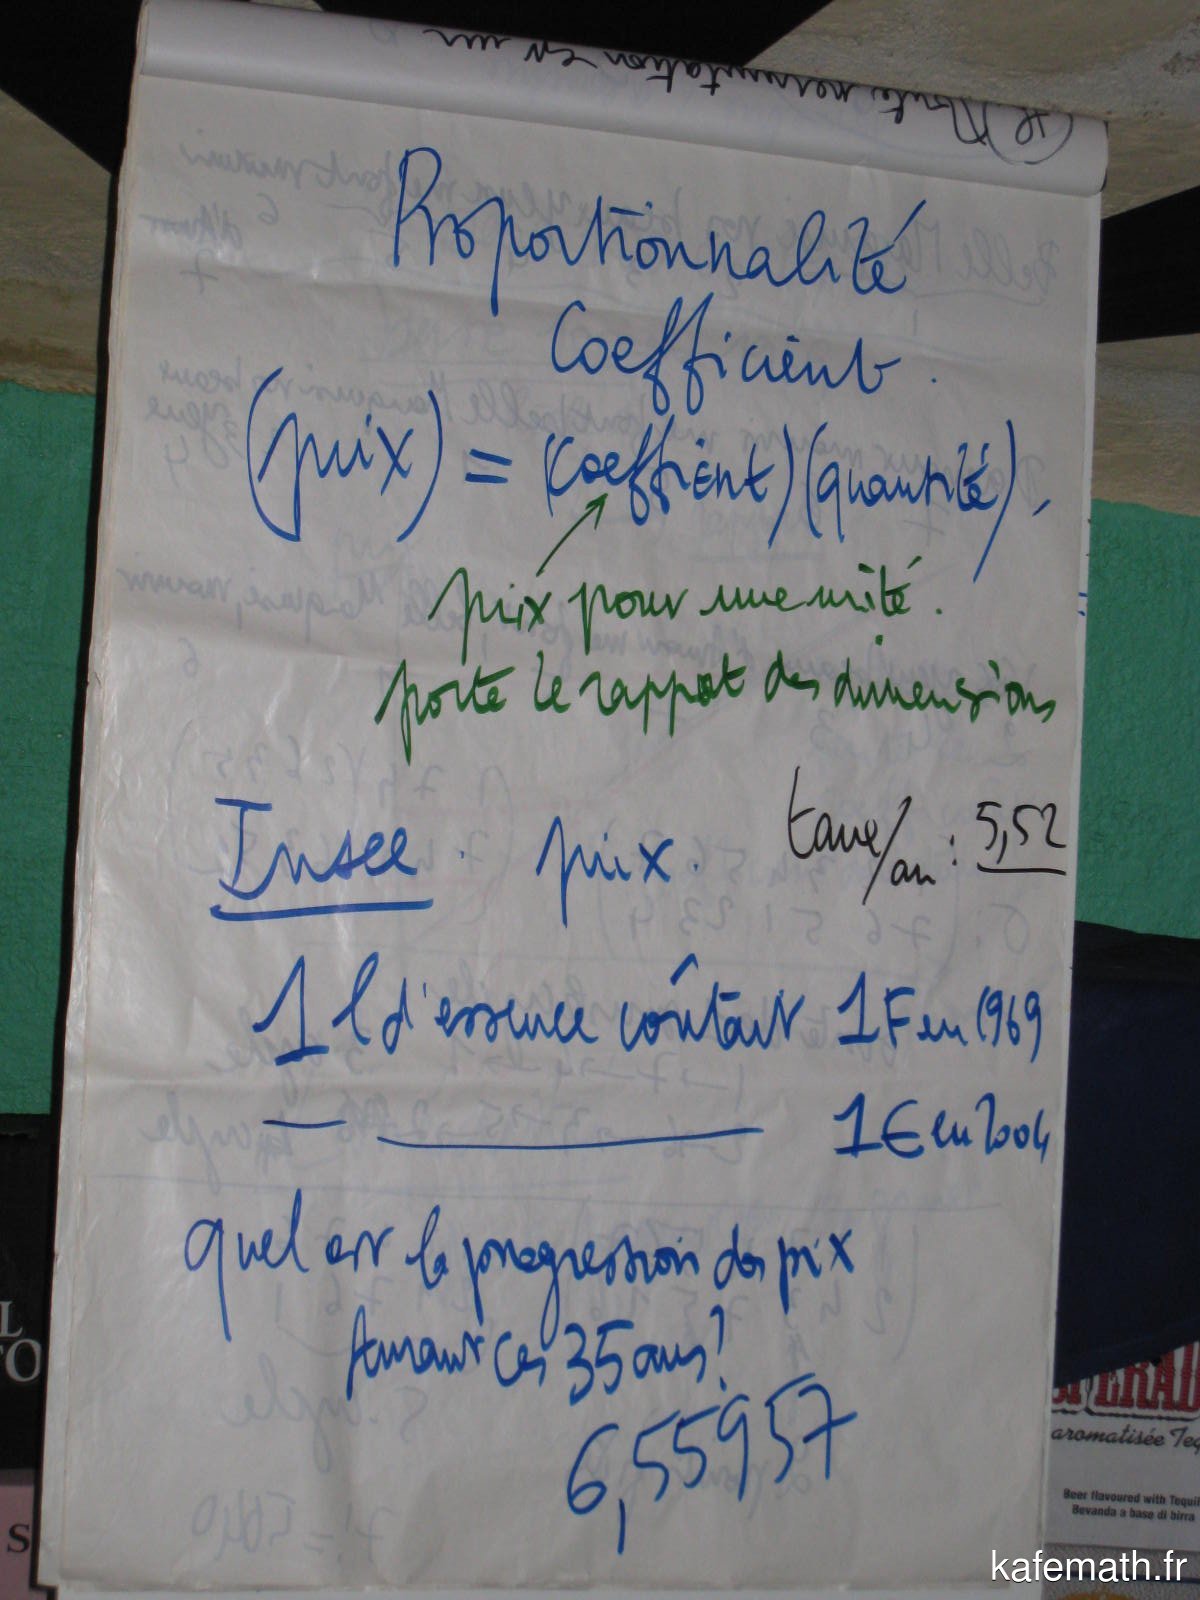 Toute permutation est un
Proportionnalité
Coefficient.
(prix) = (Coeffient)(quantité).
prix pour une unité.
porte le rapport des dimensions
Insee. prix. taux/an : 5,52
1 l d'essence coûtait 1F en 1969
1€ en 2004
quel est la progression des prix
durant ces 35 ans?
6,55957
L
TO
S
PERAD
aromatisée Teq
Beer flavoured with Tequil
Bevanda a base di birra
kafemath.fr